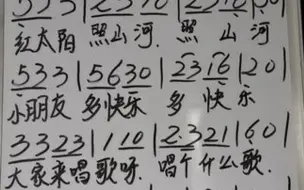 红太阳 照山河. 照 山 河
533|5630|2316|20|
小朋友 多快乐 多 快 乐
3323|110|2.321|60|
大家来唱歌呀. 唱个什么歌.